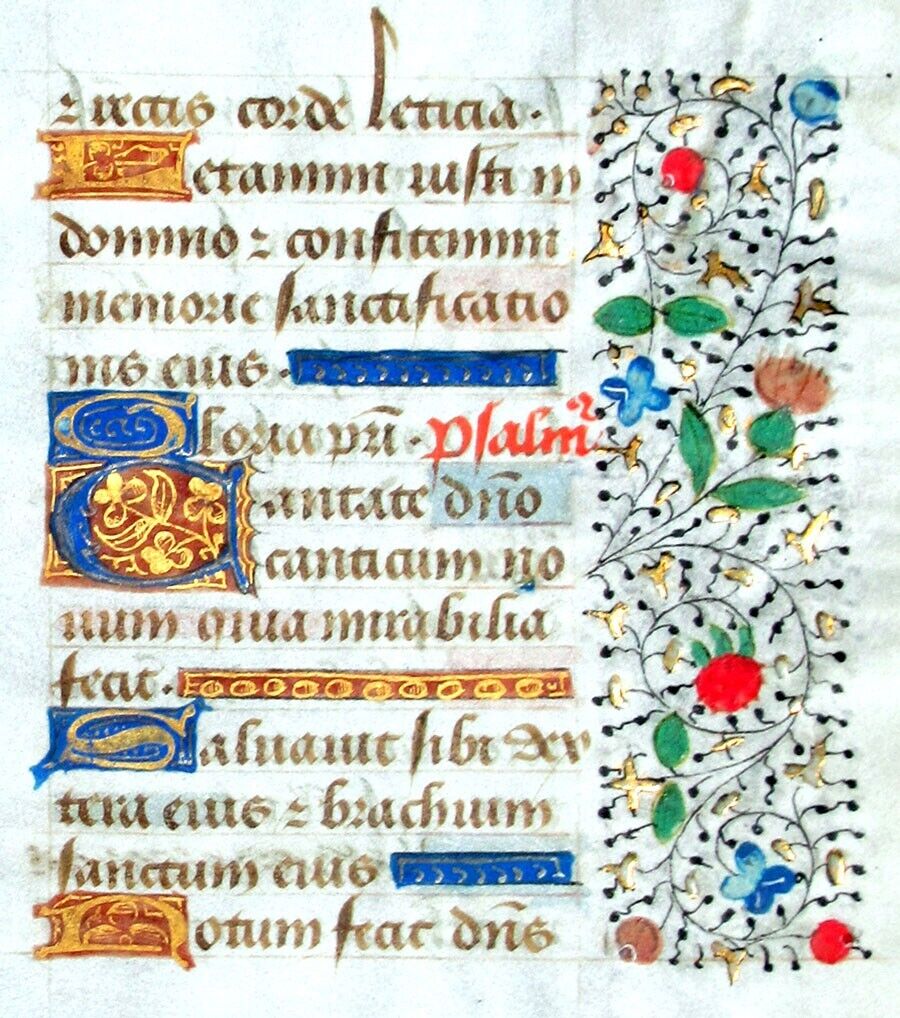 ⁊ rectis corde leticia.
Letamini iusti in
domino ⁊ confitemini
memorie sanctificatio
nis eius.
Gloria pr̄i. Psalmꝰ
Cantate dn̄o
canticum no
uum quia mirabilia
fecit.
Saluauit sibi dex
tera eius ⁊ brachium
sanctum eius
Notum fecit dn̄s